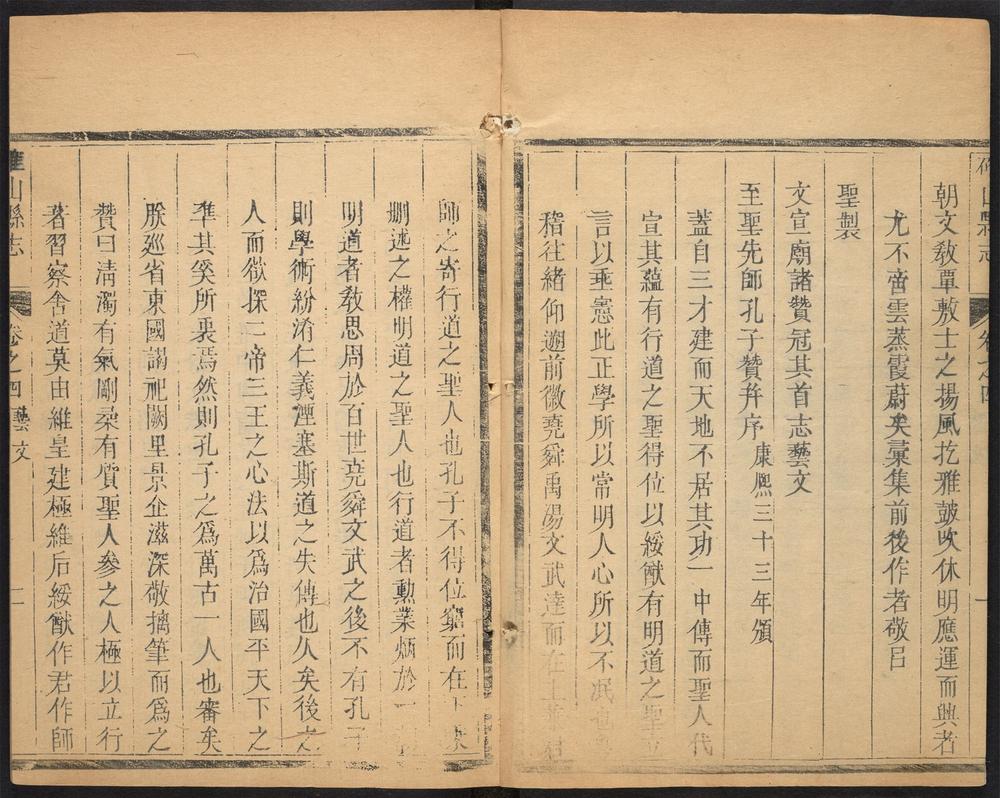 山縣志 卷之四 一
朝文敎覃敷士之揚風扢雅皷吹休明應運而興者
尤不啻雲蒸霞蔚矣彚集前後作者敬吕
聖製
文宣廟諸贊冠其首志藝文
至聖先師孔子贊幷序 康熙三十三年頒
蓋自三才建而天地不居其功一中傳而聖人代
宣其蘊有行道之聖得位以綏猷有明道之聖立
言以垂憲此正學所以常明人心所以不泯也
稽往緒仰遡前徽堯舜禹湯文武達而在上君
師之寄行道之聖人也孔子不得位窮而在下
刪述之權明道之聖人也行道者勳業炳於一
明道者敎思周於百世堯舜文武之後不有孔子
則學術紛淆仁義湮塞斯道之失傳也久矣後之
人而欲探二帝三王之心法以爲治國平天下之
準其奚所衷焉然則孔子之爲萬古一人也審矣
朕廵省東國謁祀闕里景企滋深敬摛筆而爲之
贊曰淸濁有氣剛柔有質聖人參之人極以立行
著習察舍道莫由維皇建極維后綏猷作君作師
山縣志 卷之四 藝文 二